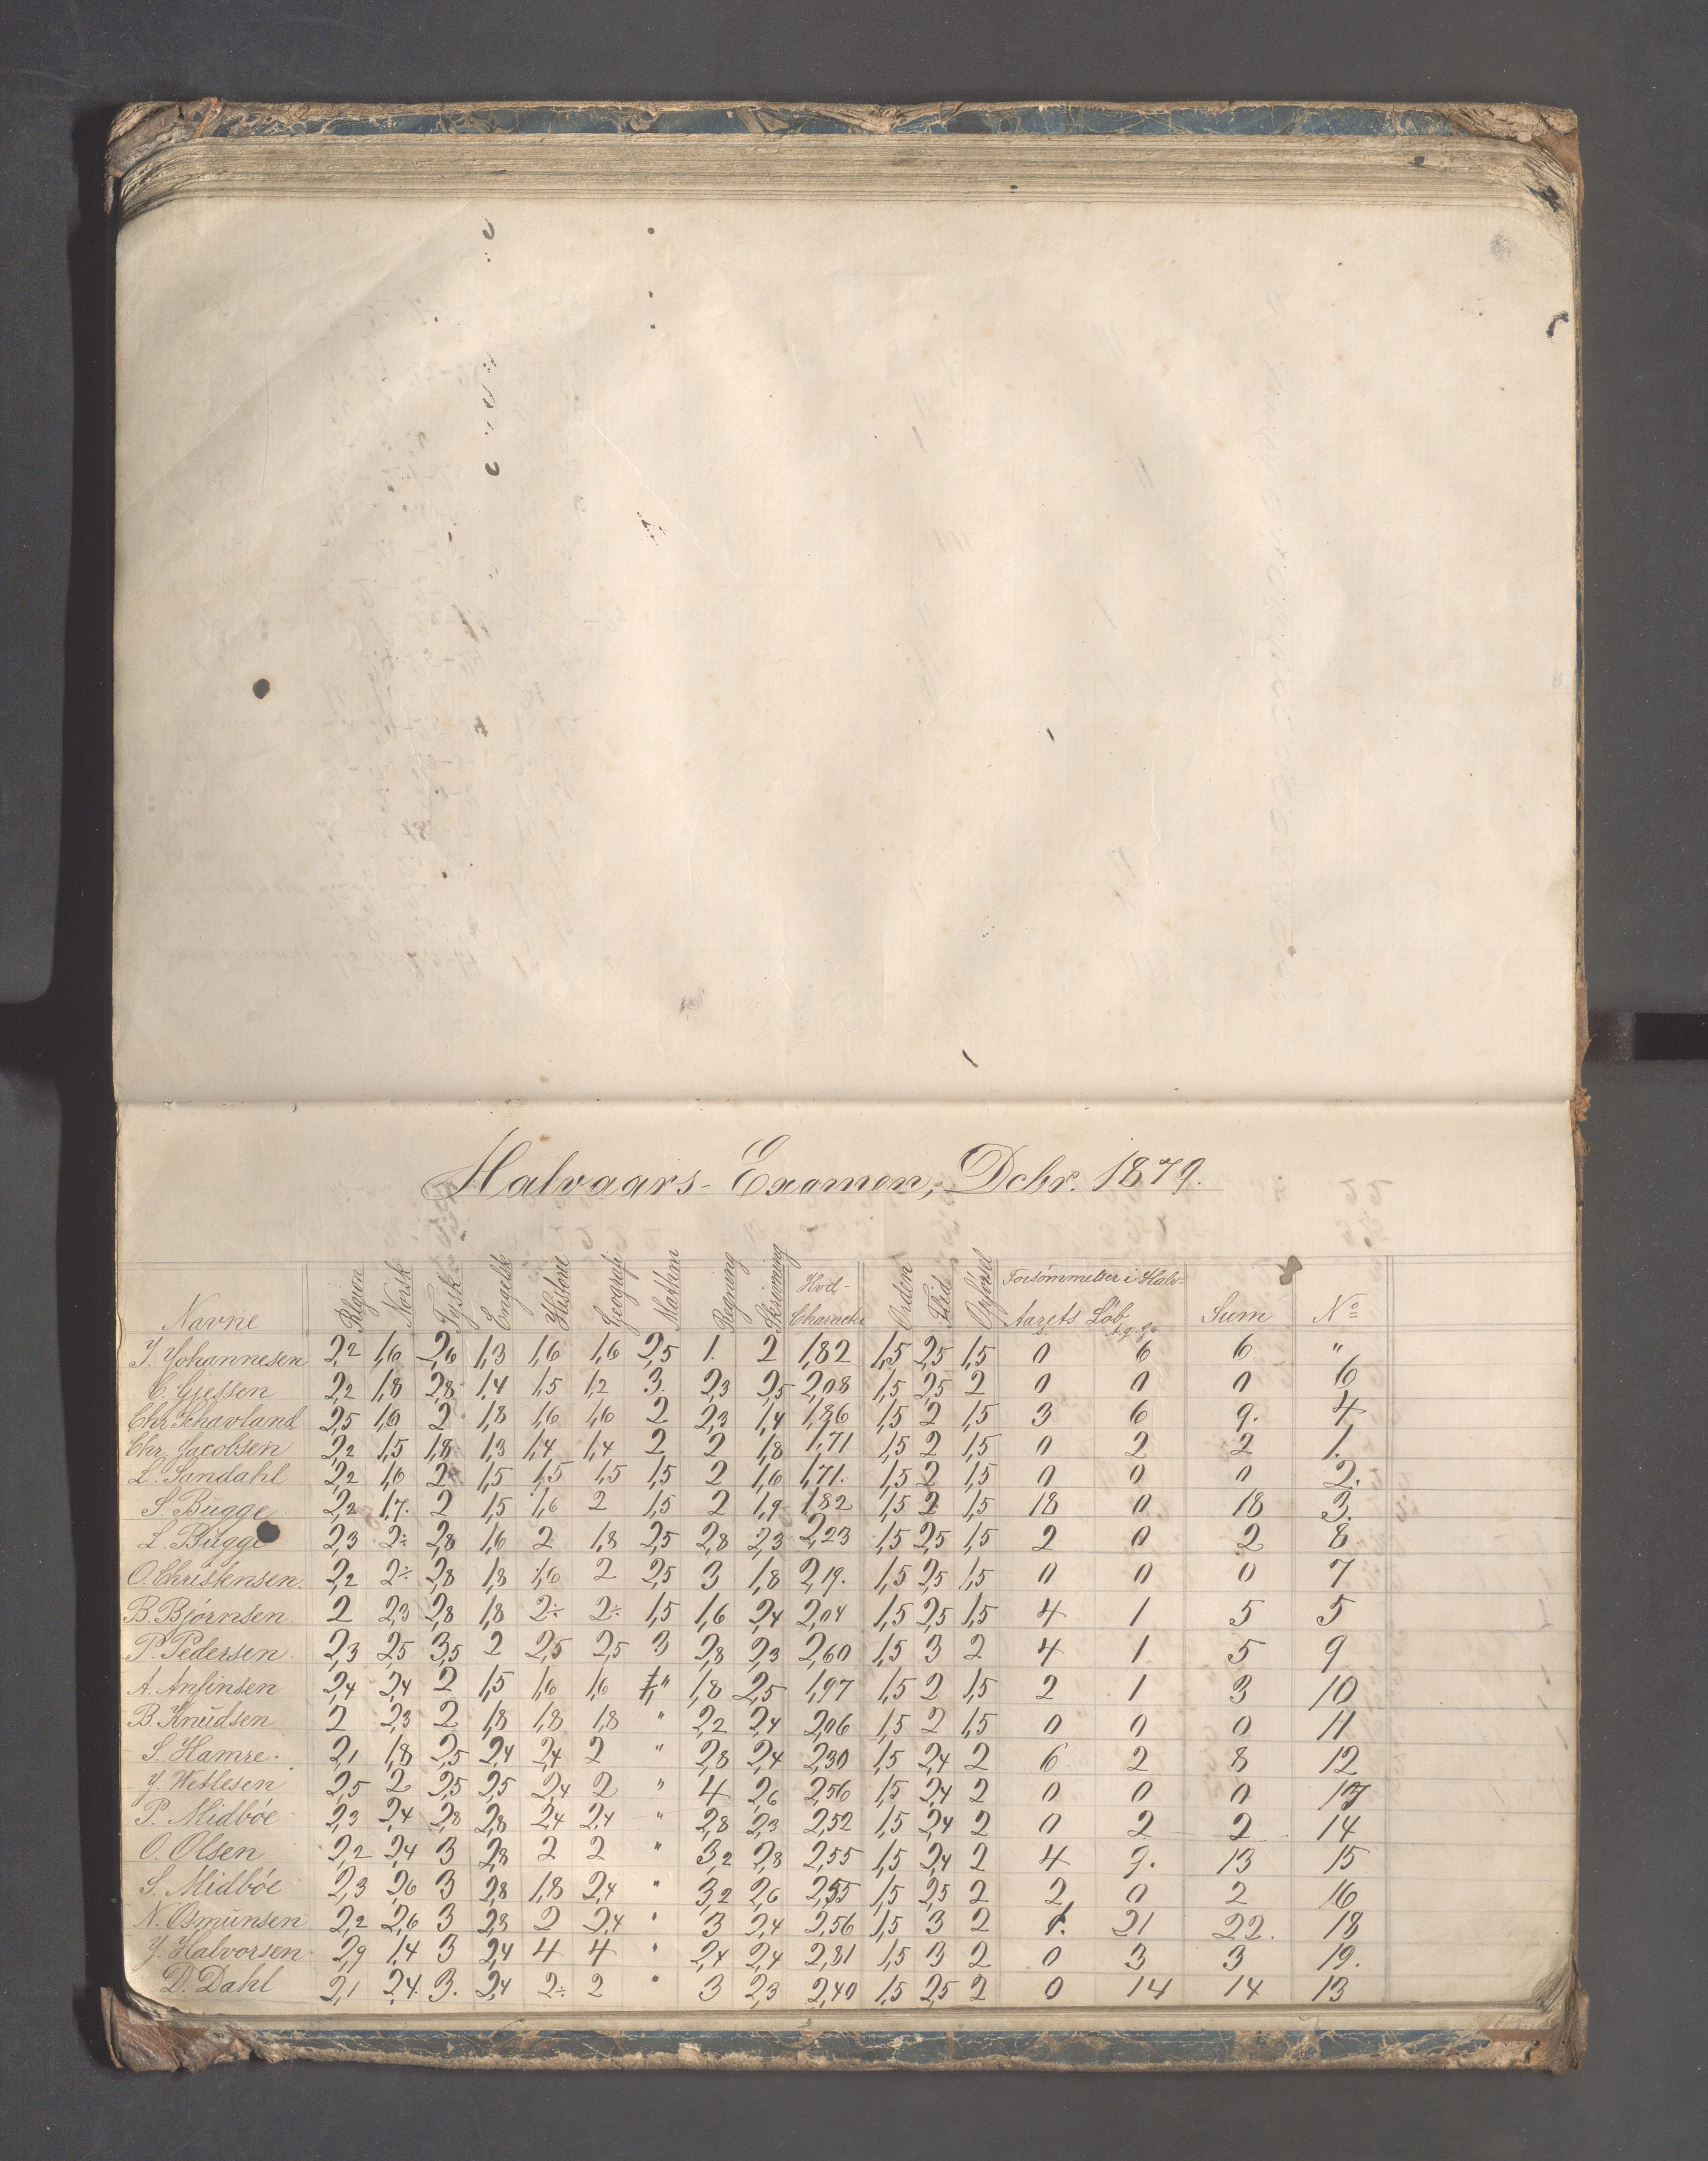 Halvaars-Examen, Dcbr. 1879.
Navne Religion Norsk Tysk Engelsk Historie Geografi Mathem Regning Skrivning Hvd-Charackt Orden Flid Opførsel Forsömmelser i Halv-Aarets Löb Sum No
J. Johannesen 2,2 1,6 2,6 1,3 1,6 1,6 2,5 1. 2 1,82 1,5 2,5 1,5 0 6 6 "
C. Gjessen 2,2 1,8 2,8 1,4 1,5 1,2 3. 2,3 2,5 2,08 1,5 2,5 2 0 0 0 6
Chr. Schavland 2,5 1,6 2 1,8 1,6 1,6 2 2,3 1,4 1,86 1,5 2 1,5 3 6 9. 4
Chr. Jacobsen 2,2 1,5 1,8 1,3 1,4 1,4 2 2 1,8 1,71 1,5 2 1,5 0 2 2 1.
L. Sandahl 2,2 1,6 2÷ 1,5 1,5 1,5 1,5 2 1,6 1,71. 1,5 2 1,5 0 0 0 2.
S. Bugge 2,2 1,7. 2 1,5 1,6 2 1,5 2 1,9 1,82 1,5 2 1,5 18 0 18 3.
L. Bugge 2,3 2÷ 2,8 1,6 2 1,8 2,5 2,8 2,3 2,23 1,5 2,5 1,5 2 0 2 8
O. Christensen 2,2 2÷ 2,8 1,8 1,6 2 2,5 3 1,8 2,19. 1,5 2,5 1,5 0 0 0 7
B. Bjørnsen 2 2,3 2,8 1,8 2÷ 2÷ 1,5 1,6 2,4 2,04 1,5 2,5 1,5 4 1 5 5
P. Pedersen 2,3 2,5 3,5 2 2,5 2,5 3 2,8 2,3 2,60 1,5 3 2 4 1 5 9
A. Anfinsen 2,4 2,4 2 1,5 1,6 1,6 " 1,8 2,5 1,97 1,5 2 1,5 2 1 3 10
B. Knudsen 2 2,3 2 1,8 1,8 1,8 " 2,2 2,4 2,06 1,5 2 1,5 0 0 0 11
S. Hamre. 2,1 1,8 2,5 2,4 2,4 2 " 2,8 2,4 2,30 1,5 2,4 2 6 2 8 12
J. Wetlesen 2,5 2 2,5 2,5 2,4 2 " 4 2,6 2,56 1,5 2,4 2 0 0 0 17
P. Midbøe 2,3 2,4 2,8 2,8 2,4 2,4 " 2,8 2,3 2,52 1,5 2,4 2 0 2 2 14
O. Olsen 2,2 2,4 3 2,8 2 2 " 3,2 2,8 2,55 1,5 2,4 2 4 9. 13 15
S. Midbøe 2,3 2,6 3 2,8 1,8 2,4 " 3,2 2,6 2,55 1,5 2,5 2 2 0 2 16
N. Osmunsen 2,2 2,6 3 2,8 2 2,4 " 3 2,4 2,56 1,5 3 2 1. 21 22. 18
J. Halvorsen 2,9 1,4 3 2,4 4 4 " 2,4 2,4 2,81 1,5 3 2 0 3 3 19.
D. Dahl 2,1 2,4. 3. 2,4 2÷ 2 " 3 2,3 2,40 1,5 2,5 2 0 14 14 13